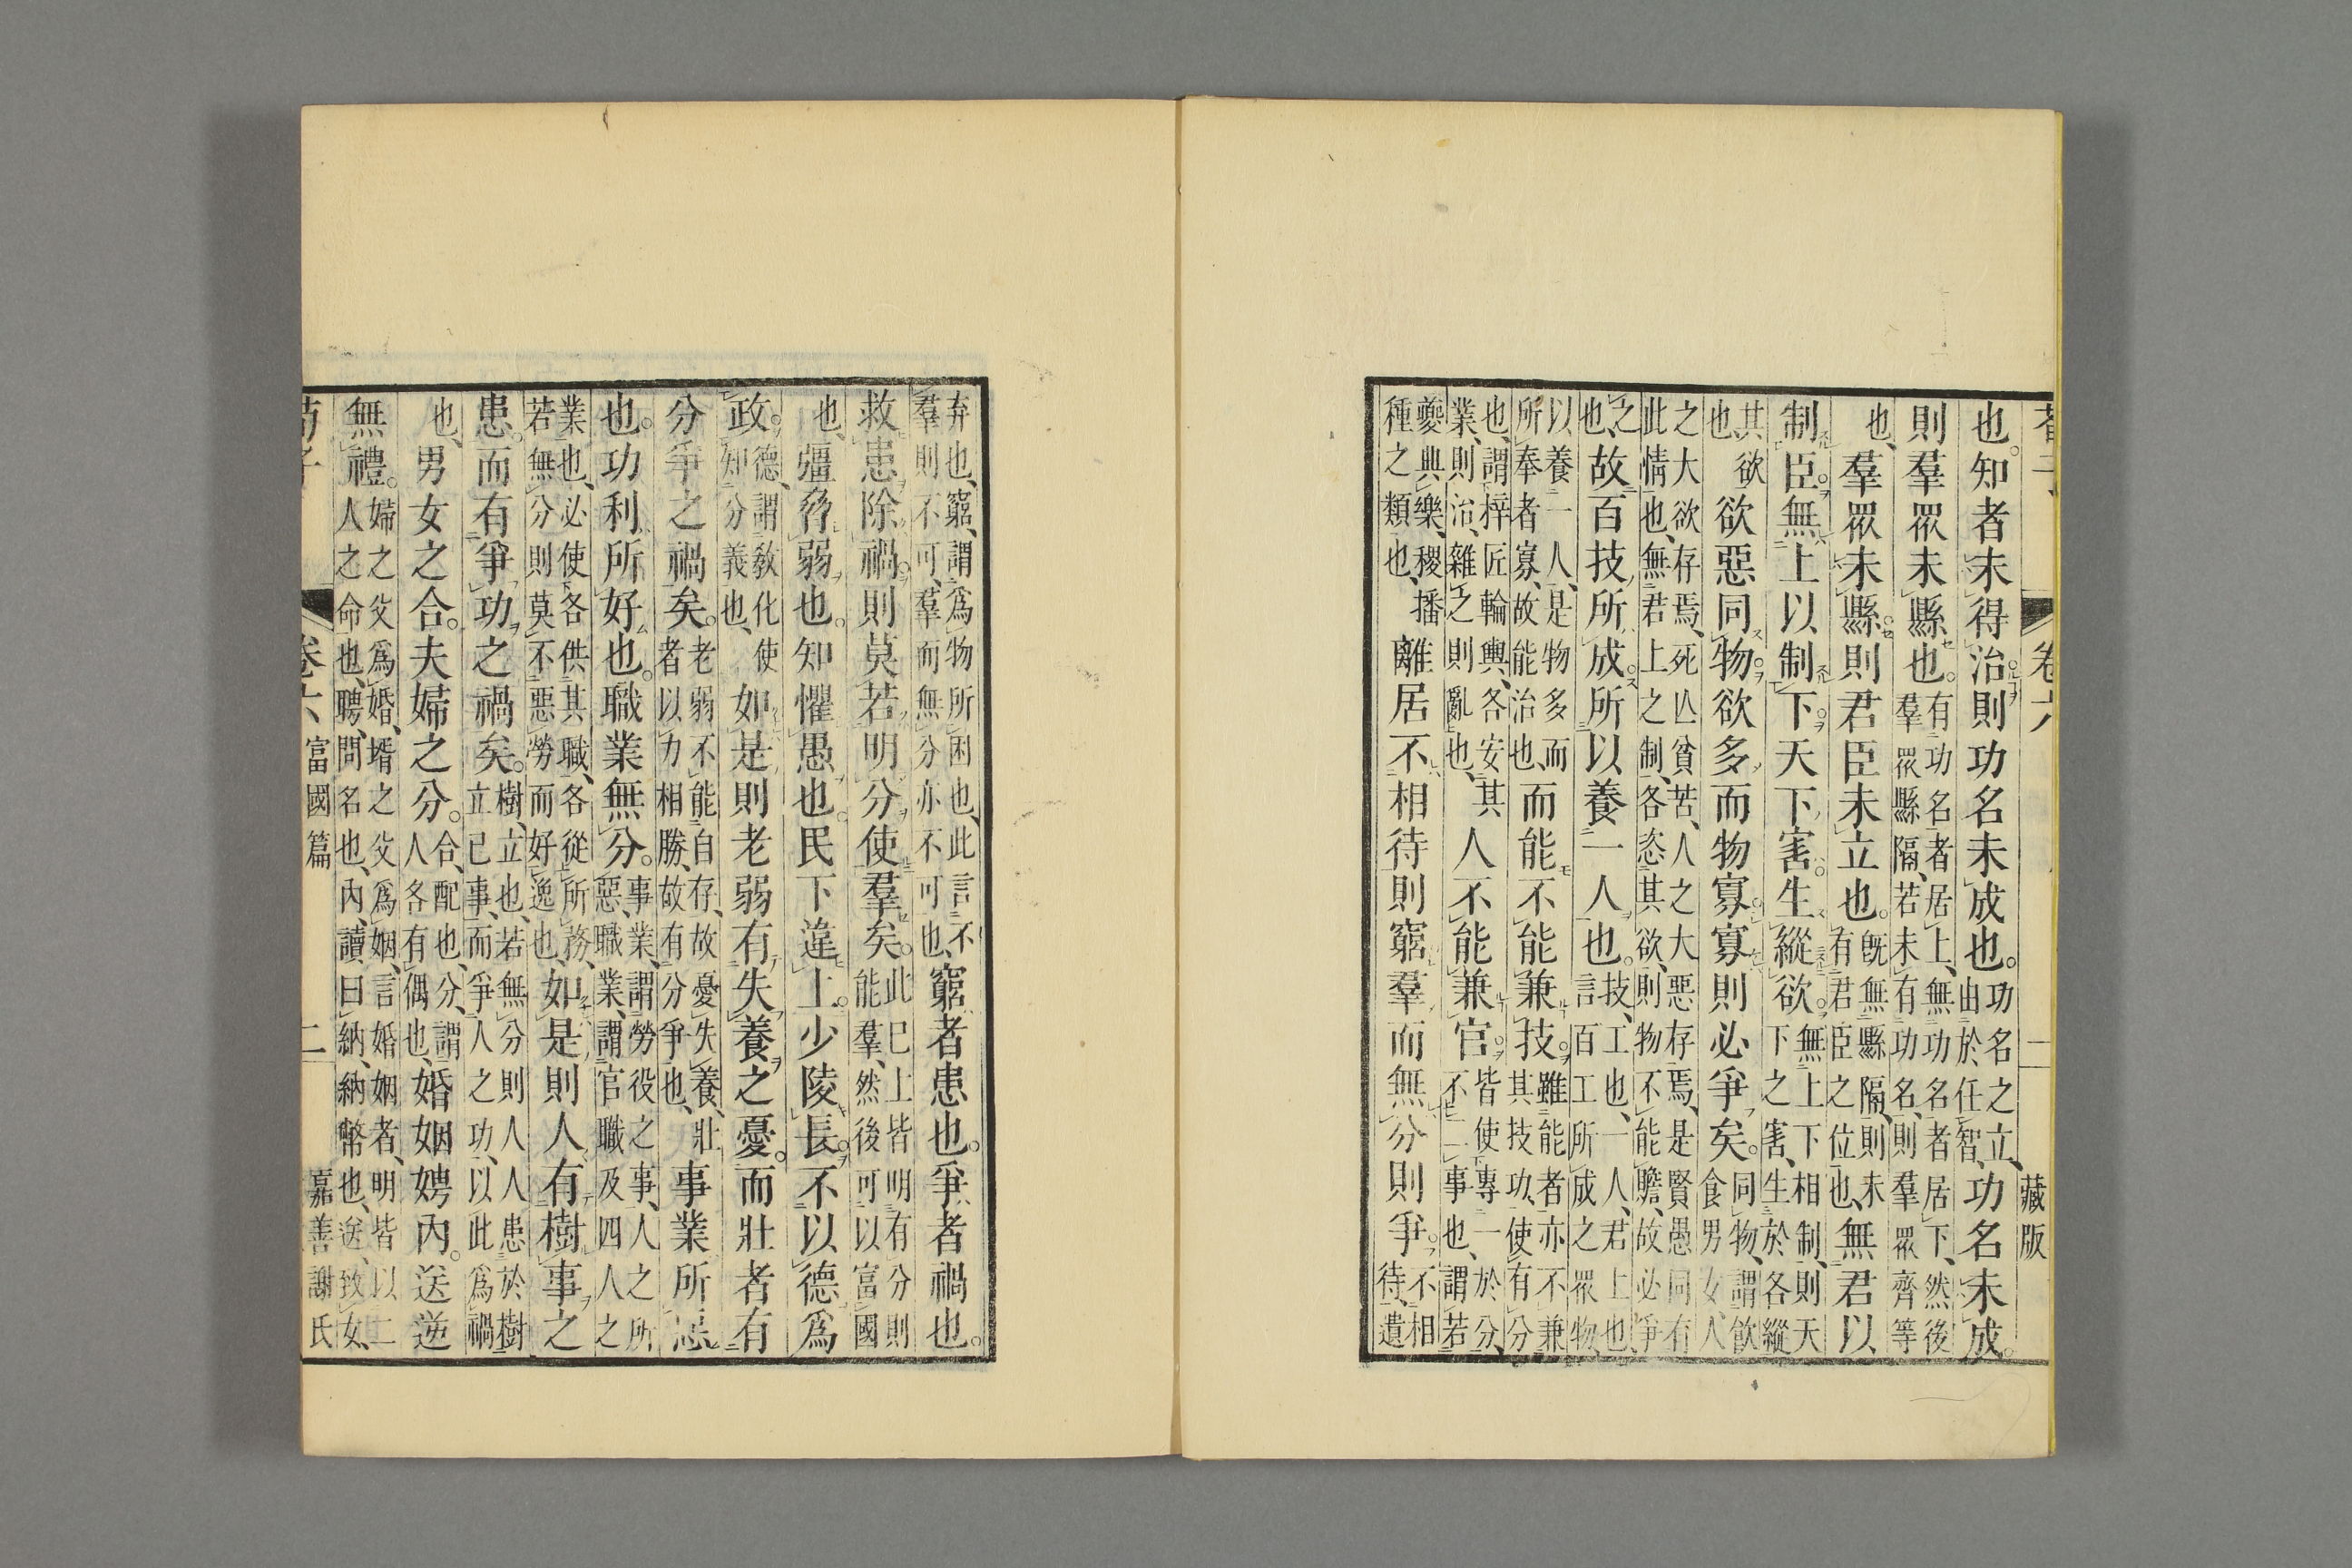 荀子 卷六 二 藏版
也。知者未得治則功名未成也。功名之立、由於任智、功名未成。
則羣眾未縣也。有功名者居上、無功名者居下、然後羣眾縣隔、若未有功名、則羣眾齊等
也、羣眾未縣則君臣未立也。既無縣隔、則未有君臣之位也、無君以
制臣。無上以制下。天下害生縱欲。無上下相制、則天下之害、生於各縱
其欲也、欲惡同物。欲多而物寡。寡則必爭矣。同物、謂飲食男女人
之大欲存焉、死亾貧苦、人之大惡存焉、是賢愚同有此情也、無君上之制、各恣其欲、則物不能贍、故必爭
之也、故百技所成。所以養一人也。技、工也、一人、君上也、言百工所成之眾物、
以養一人、是物多而所奉者寡、故能治也、而能不能兼技。雖能者亦不兼其技功、使有分
也、謂梓匠輪輿、各安其業、則治、雜之則亂也、人不能兼官。皆使專一於分、不二事也、謂若
夔典樂、稷播種之類也、離居不相待則窮羣而無分則爭。不相待、遺
弃也、窮、謂爲物所困也、此言不羣則不可、羣而無分亦不可也、窮者患也。爭者禍也。
救患除禍。則莫若明分使羣矣。此已上皆明有分則能羣、然後可以富國
也、彊脅弱也。知懼愚也。民下違上。少陵長。不以德爲
政。德、謂敎化使知分義也、如是則老弱有失養之憂。而壯者有
分爭之禍矣。老弱不能自存、故憂失養、壯者以力相勝、故有分爭也、事業所惡
也。功利所好也。職業無分。事業、謂勞役之事、人之所惡、職業、謂官職及四人之
業也、必使各供其職、各從所務、若無分則莫不惡勞而好逸也、如是則人有樹事之
患。而有爭功之禍矣。樹、立也、若無分則人人患於樹立已事、而爭人之功、以此爲禍
也、男女之合。夫婦之分。合、配也、分、謂人各有偶也、婚姻娉內。送逆
無禮。婦之父爲婚、壻之父爲姻、言婚姻者、明皆以二人之命也、聘、問名也、內、讀曰納、納幣也、送、致女、
荀子 卷六 富國篇 二 嘉善謝氏